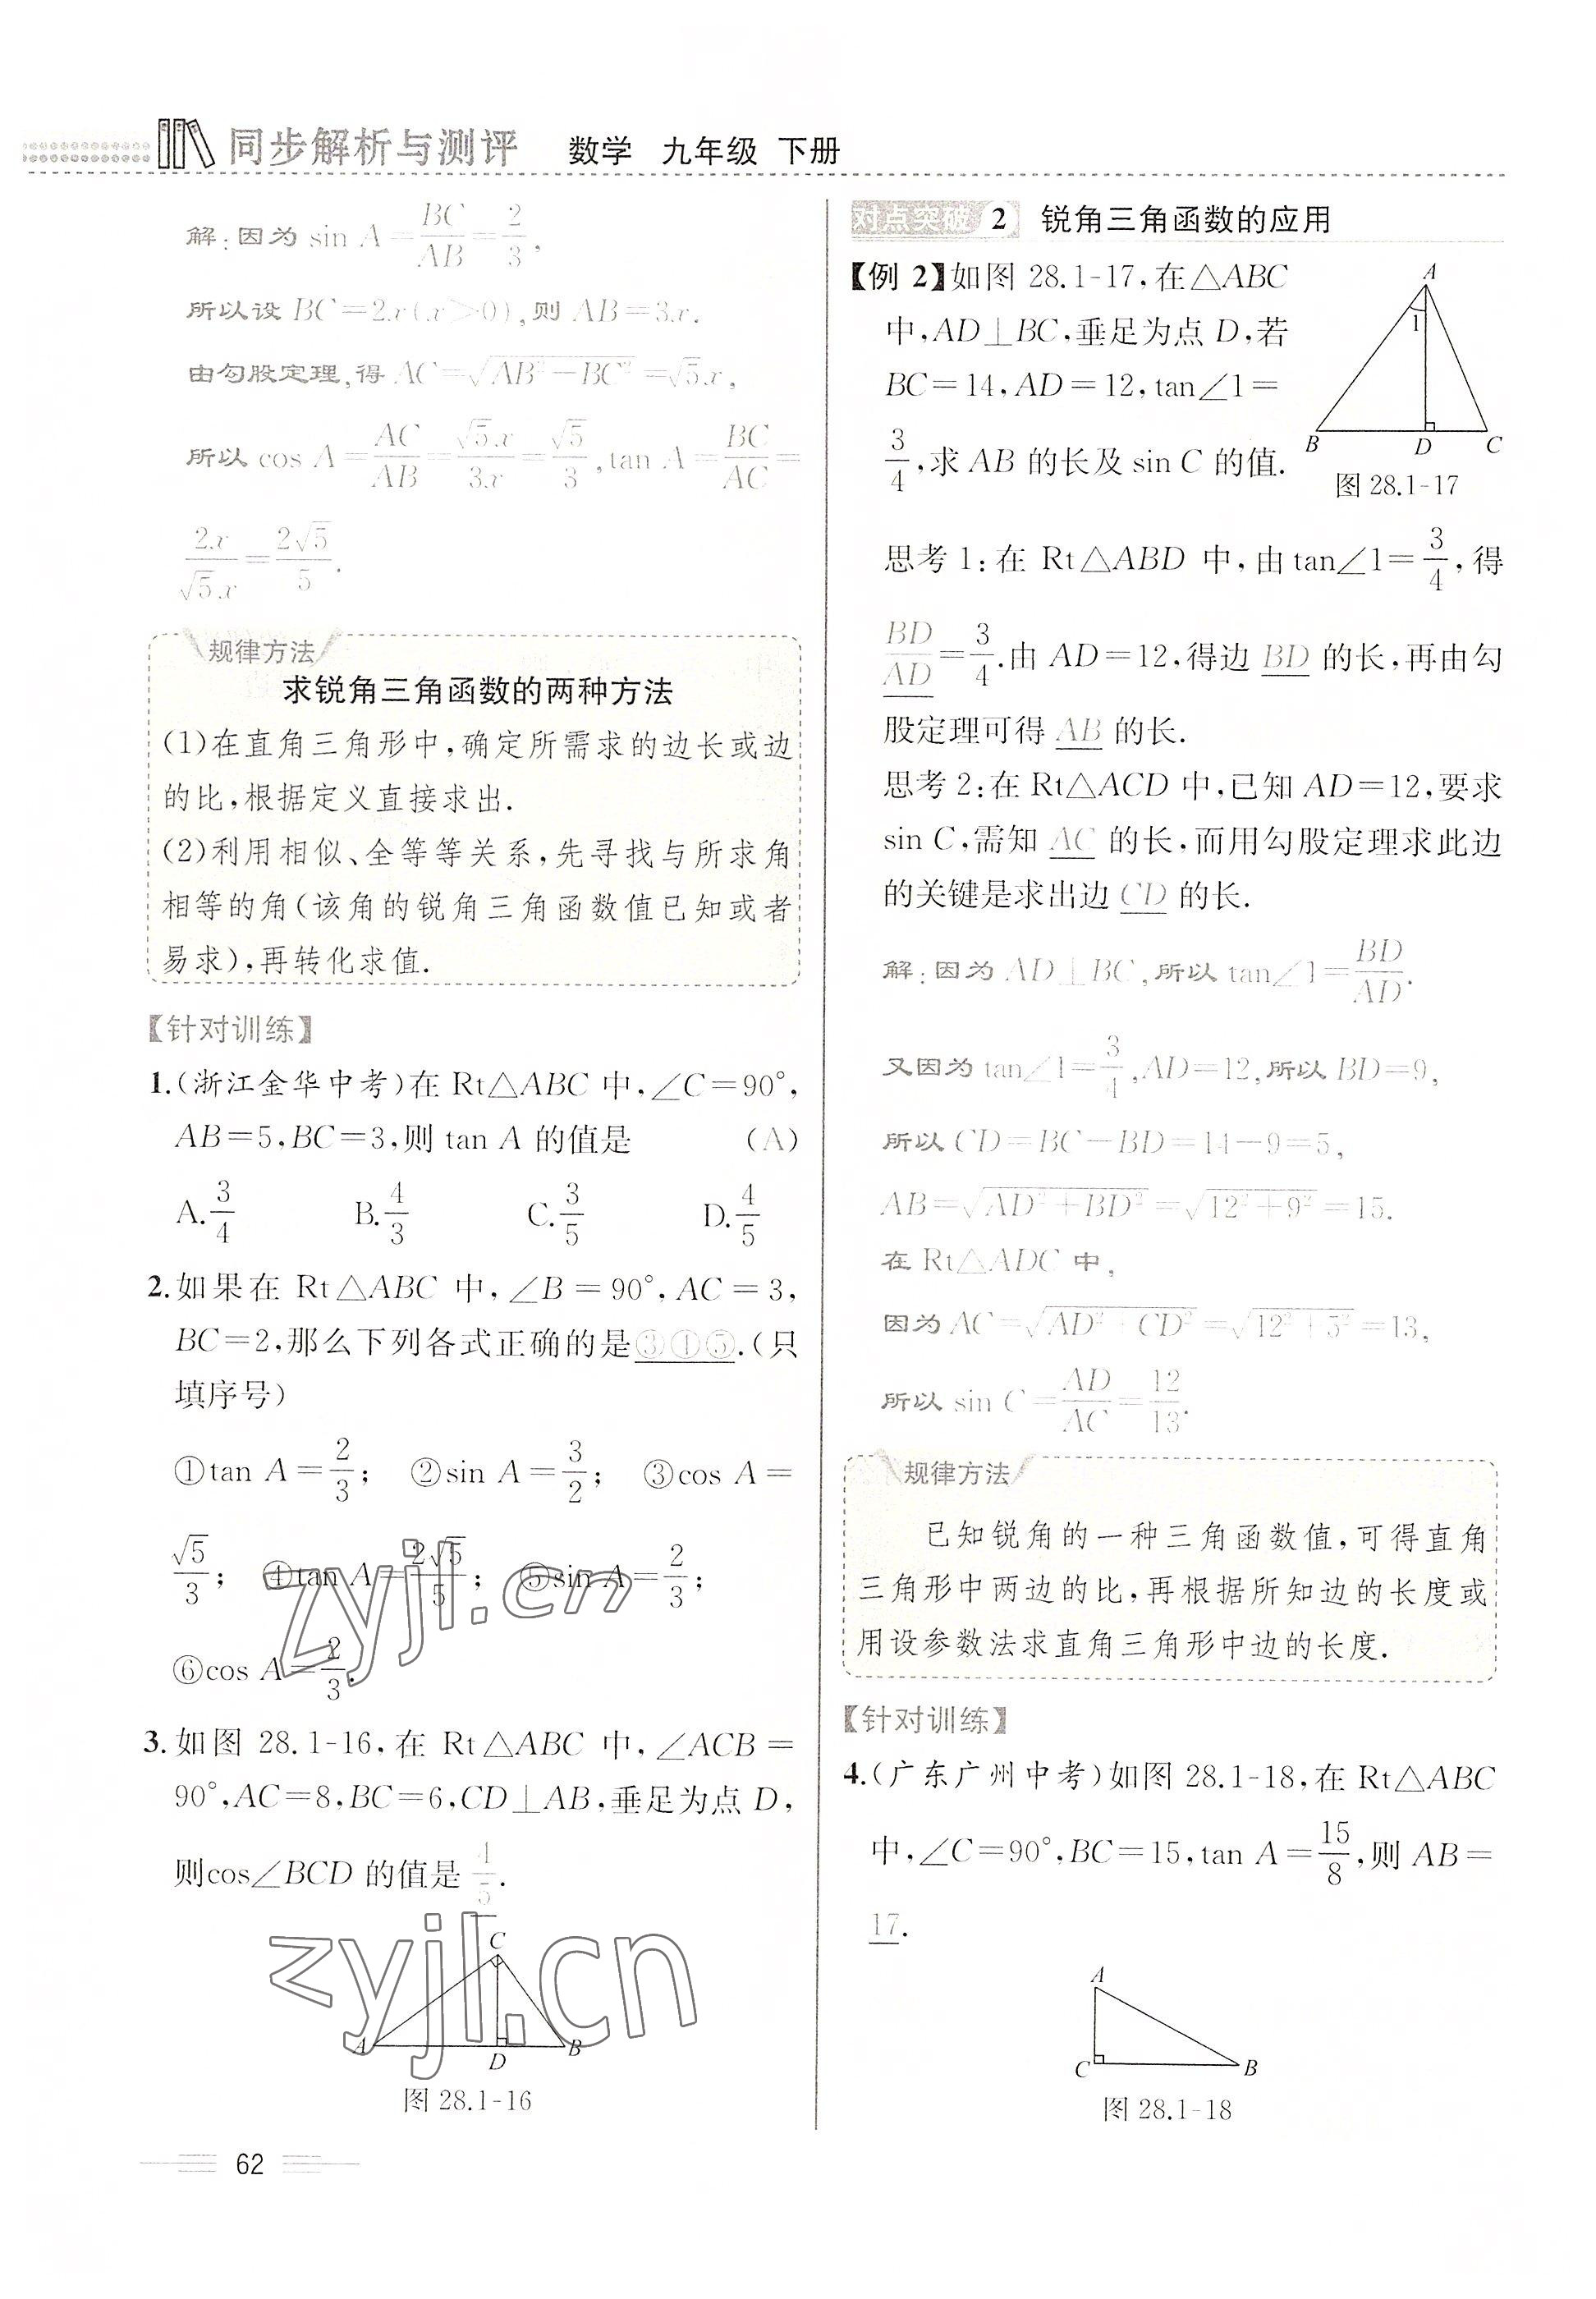 同步解析与测评 数学 九年级 下册
解:因为 sin A=BC/AB=2/3,
所以设 BC=2x(x>0),则 AB=3x.
由勾股定理,得 AC=√(AB²-BC²)=√5x,
所以 cos A=AC/AB=√5x/3x=√5/3,tan A=BC/AC=
2x/√5x=2√5/5.
规律方法
求锐角三角函数的两种方法
(1)在直角三角形中,确定所需求的边长或边
的比,根据定义直接求出.
(2)利用相似、全等等关系,先寻找与所求角
相等的角(该角的锐角三角函数值已知或者
易求),再转化求值.
【针对训练】
1.(浙江金华中考)在 Rt△ABC 中,∠C=90°,
AB=5,BC=3,则 tan A 的值是 (A)
A.3/4 B.4/3 C.3/5 D.4/5
2.如果在 Rt△ABC 中,∠B=90°,AC=3,
BC=2,那么下列各式正确的是③④⑤.(只
填序号)
①tan A=2/3; ②sin A=3/2; ③cos A=
√5/3; ④tan A=2√5/5; ⑤sin A=2/3;
⑥cos A=2/3.
3.如图 28.1-16,在 Rt△ABC 中,∠ACB=
90°,AC=8,BC=6,CD⊥AB,垂足为点 D,
则cos∠BCD 的值是 4/5.
C
A D B
图 28.1-16
62
对点突破 2 锐角三角函数的应用
【例 2】如图 28.1-17,在△ABC
中,AD⊥BC,垂足为点 D,若
BC=14,AD=12,tan∠1=
3/4,求 AB 的长及 sin C 的值.
A
1
B D C
图 28.1-17
思考 1:在 Rt△ABD 中,由 tan∠1=3/4,得
BD/AD=3/4.由 AD=12,得边 BD 的长,再由勾
股定理可得 AB 的长.
思考 2:在 Rt△ACD 中,已知 AD=12,要求
sin C,需知 AC 的长,而用勾股定理求此边
的关键是求出边 CD 的长.
解:因为 AD⊥BC,所以 tan∠1=BD/AD.
又因为 tan∠1=3/4,AD=12,所以 BD=9,
所以 CD=BC-BD=14-9=5,
AB=√(AD²+BD²)=√(12²+9²)=15.
在 Rt△ADC 中,
因为 AC=√(AD²+CD²)=√(12²+5²)=13,
所以 sin C=AD/AC=12/13.
规律方法
已知锐角的一种三角函数值,可得直角
三角形中两边的比,再根据所知边的长度或
用设参数法求直角三角形中边的长度.
【针对训练】
4.(广东广州中考)如图 28.1-18,在 Rt△ABC
中,∠C=90°,BC=15,tan A=15/8,则 AB=
17.
A
C B
图 28.1-18
zyjl.cn
zyjl.cn